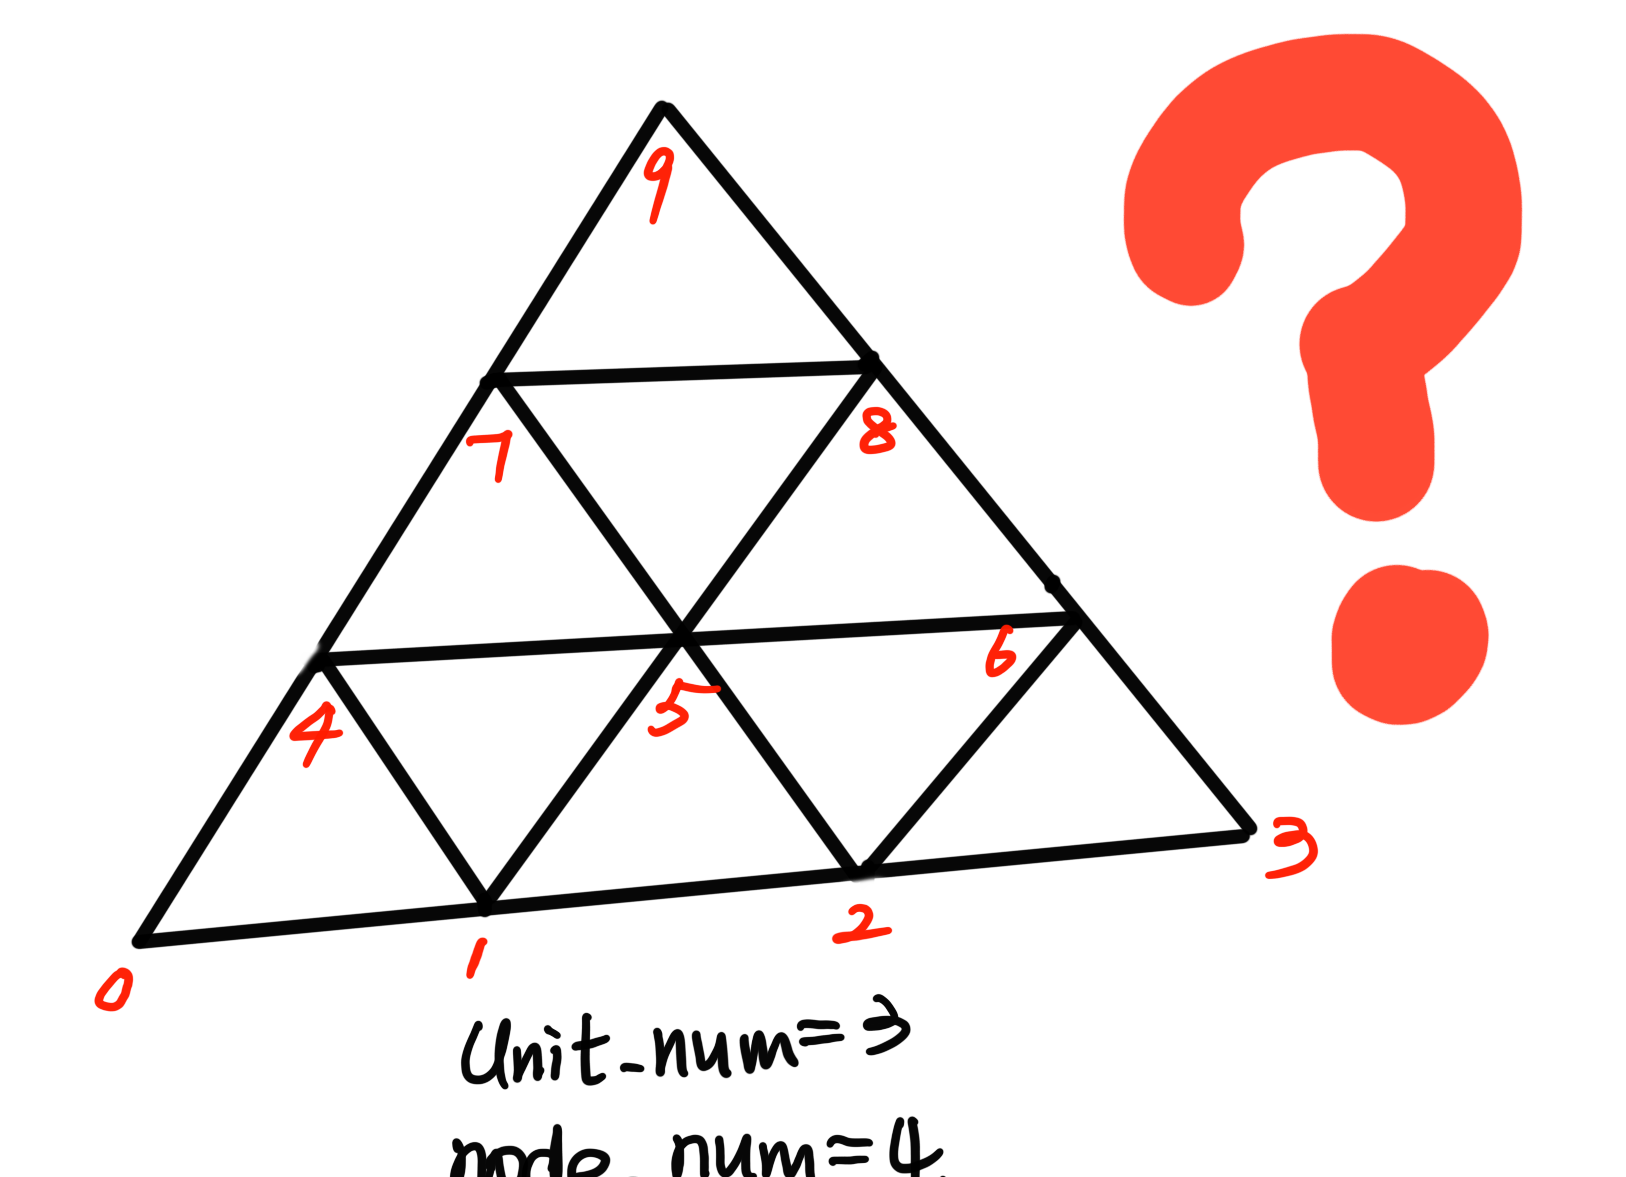 ?
9
7 8
4 5 6
0 1 2 3
Unit_num=3
node_num=4